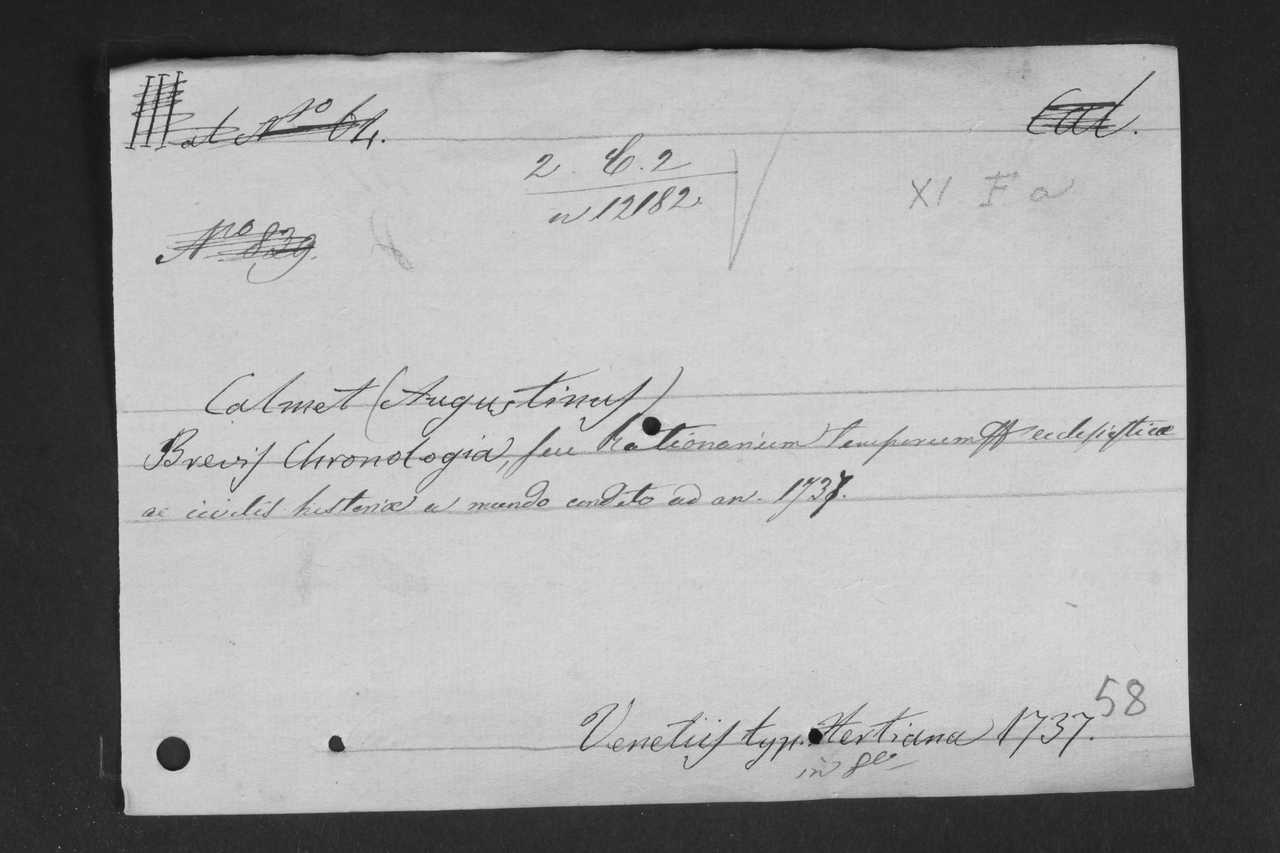 III al Nro 64.
Cal.
2. C. 2
n 12182.
XI F a
Nro 839.
Calmet (Augustinus)
Brevis Chronologia, seu Rationarium temporum ecclesiasticæ
ac civilis historiæ a mundo condito ad an. 1737.
58
Venetiis typ. Hertiana 1737.
in 8o